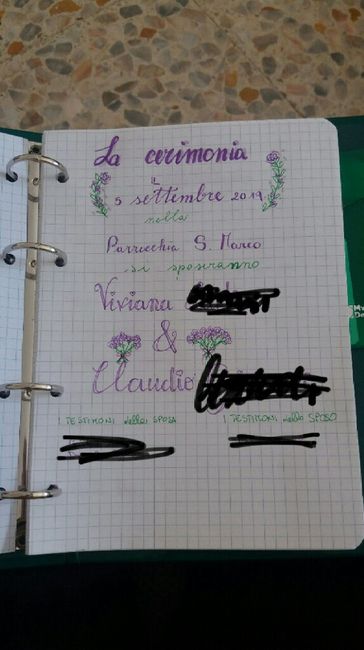 La cerimonia
il
5 settembre 2019
nella
Parrocchia S. Marco
si sposeranno
Viviana
&
Claudio
I TESTIMONI della SPOSA
I TESTIMONI dello SPOSO